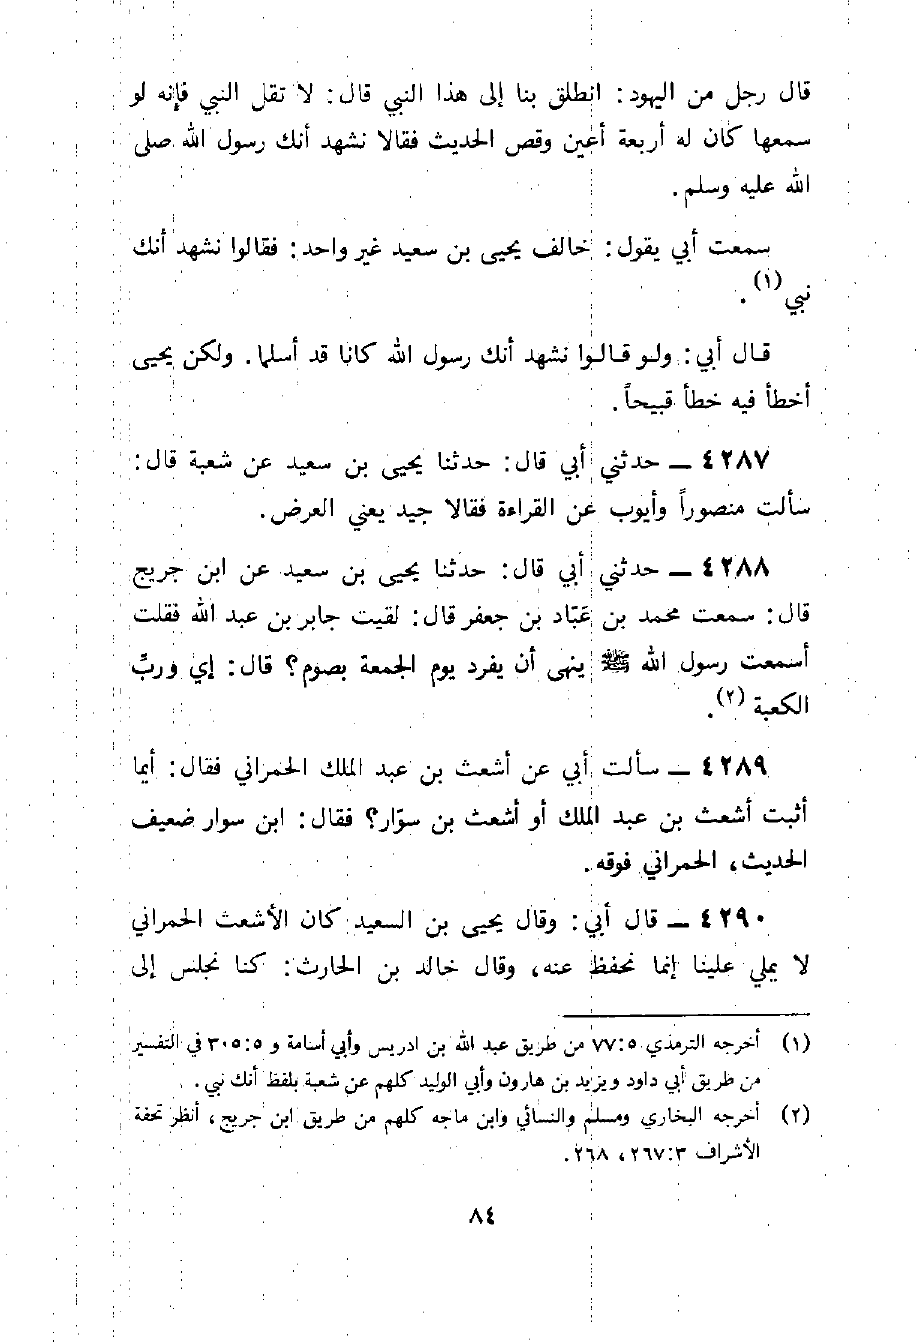 قال رجل من اليهود: انطلق بنا إلى هذا النبي قال: لا تقل النبي فإنه لو
سمعها كان له أربعة أعين وقص الحديث فقالا نشهد أنك رسول الله صلى
الله عليه وسلم.
سمعت أبي يقول: خالف يحيى بن سعيد غير واحد: فقالوا نشهد أنك
نبي (١).
قال أبي: ولو قالوا نشهد أنك رسول الله كانا قد أسلما. ولكن يحيى
أخطأ فيه خطأ قبيحاً.
٤٢٨٧ ــ حدثني أبي قال: حدثنا يحيى بن سعيد عن شعبة قال:
سألت منصوراً وأيوب عن القراءة فقالا جيد يعني العرض.
٤٢٨٨ ــ حدثني أبي قال: حدثنا يحيى بن سعيد عن ابن جريج
قال: سمعت محمد بن عبّاد بن جعفر قال: لقيت جابر بن عبد الله فقلت
أسمعت رسول الله ﷺ ينهى أن يفرد يوم الجمعة بصوم؟ قال: إي وربِّ
الكعبة (٢).
٤٢٨٩ ــ سألت أبي عن أشعث بن عبد الملك الحمراني فقال: أيما
أثبت أشعث بن عبد الملك أو أشعث بن سوّار؟ فقال: ابن سوار ضعيف
الحديث، الحمراني فوقه.
٤٢٩٠ ــ قال أبي: وقال يحيى بن السعيد كان الأشعث الحمراني
لا يملي علينا إنما نحفظ عنه، وقال خالد بن الحارث: كنا نجلس إلى
(١) أخرجه الترمذي ٥:٧٧ من طريق عبد الله بن ادريس وأبي أسامة و ٥:٣٠٥ في التفسير
من طريق أبي داود ويزيد بن هارون وأبي الوليد كلهم عن شعبة بلفظ أنك نبي.
(٢) أخرجه البخاري ومسلم والنسائي وابن ماجه كلهم من طريق ابن جريج، أنظر تحفة
الأشراف ٣:٢٦٧، ٢٦٨.
٨٤